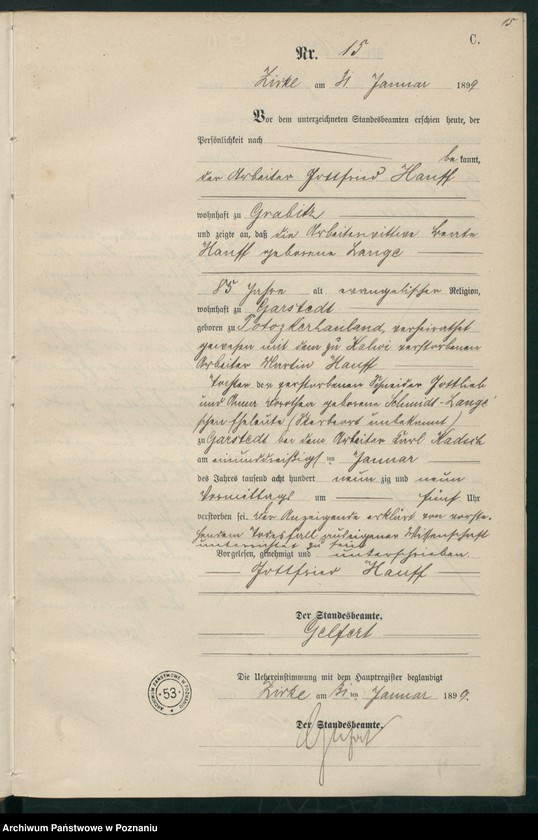 15
C.
Nr. 15
Zirke am 31. Januar 1899
Vor dem unterzeichneten Standesbeamten erschien heute, der
Persönlichkeit nach
be kannt,
der Arbeiter Gottfried Hauff
wohnhaft zu Grabitz
und zeigte an, daß die Arbeiterwittwe Beate
Hauff geborene Lange
85 Jahre alt evangelischer Religion,
wohnhaft zu Garstedt
geboren zu verheirathet
gewesen mit dem zu verstorbenen
Arbeiter Martin Hauff
Tochter der verstorbenen Schneider Gottlieb
und Anna Dorothea geborene Schmidt-Lange'
schen Eheleute (Sterbeort unbekannt)
zu Garstedt bei dem Arbeiter Carl
am einunddreißigsten Januar
des Jahres tausend acht hundert neun zig und neun
Vormittags um fünf Uhr
verstorben sei. Der Anzeigende erklärt von vorste-
hendem Todesfall aus eigener Wissenschaft
unterrichtet zu sein
Vorgelesen, genehmigt und unterschrieben
Gottfried Hauff
Der Standesbeamte.
Gelfert
Die Uebereinstimmung mit dem Hauptregister beglaubigt
Zirke am 31 ten Januar 1899.
Der Standesbeamte.
Gelfert
ARCHIWUM PAŃSTWOWE W POZNANIU
53
Archiwum Państwowe w Poznaniu